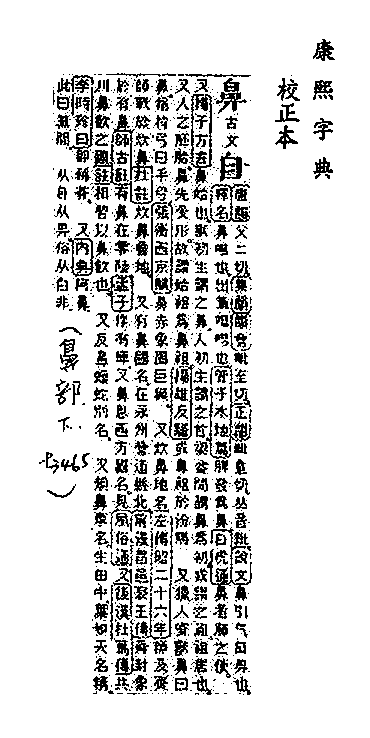 康熙字典
校正本
鼻
古文
自
唐韻父二切集韻韻會毗至切正韻毗意切𠀤音批說文鼻引气自畀也
釋名鼻嘒也出氣嘒嘒也管子水地篇脾發爲鼻白虎通鼻者肺之使
又揚子方言鼻始也獸初生謂之鼻人初生謂之首梁益閒謂鼻爲初或謂之祖祖居也
又人之胚胎鼻先受形故謂始祖爲鼻祖揚雄反騷或鼻祖於汾隅 又獵人穿獸鼻曰
鼻 張衡西京賦鼻赤象圈巨狿 又炊鼻地名左傳昭二十六年師及齊
師戰於炊鼻杜註炊鼻魯地 又有鼻國名在永州營道縣北前漢昌邑哀王傳舜封象
於有鼻師古註有鼻在零陵孟子作有庳 又鼻息西方國名見風俗通 又後漢杜篤傳共
川鼻飲之國註相習以鼻飲也 又反鼻蝮蛇別名 又類鼻 名生田中葉如天名精
李時珍曰卽豨薟 又內典阿鼻
此曰無閒 从自从畀俗从白非
(鼻部.
下..
P3465
)